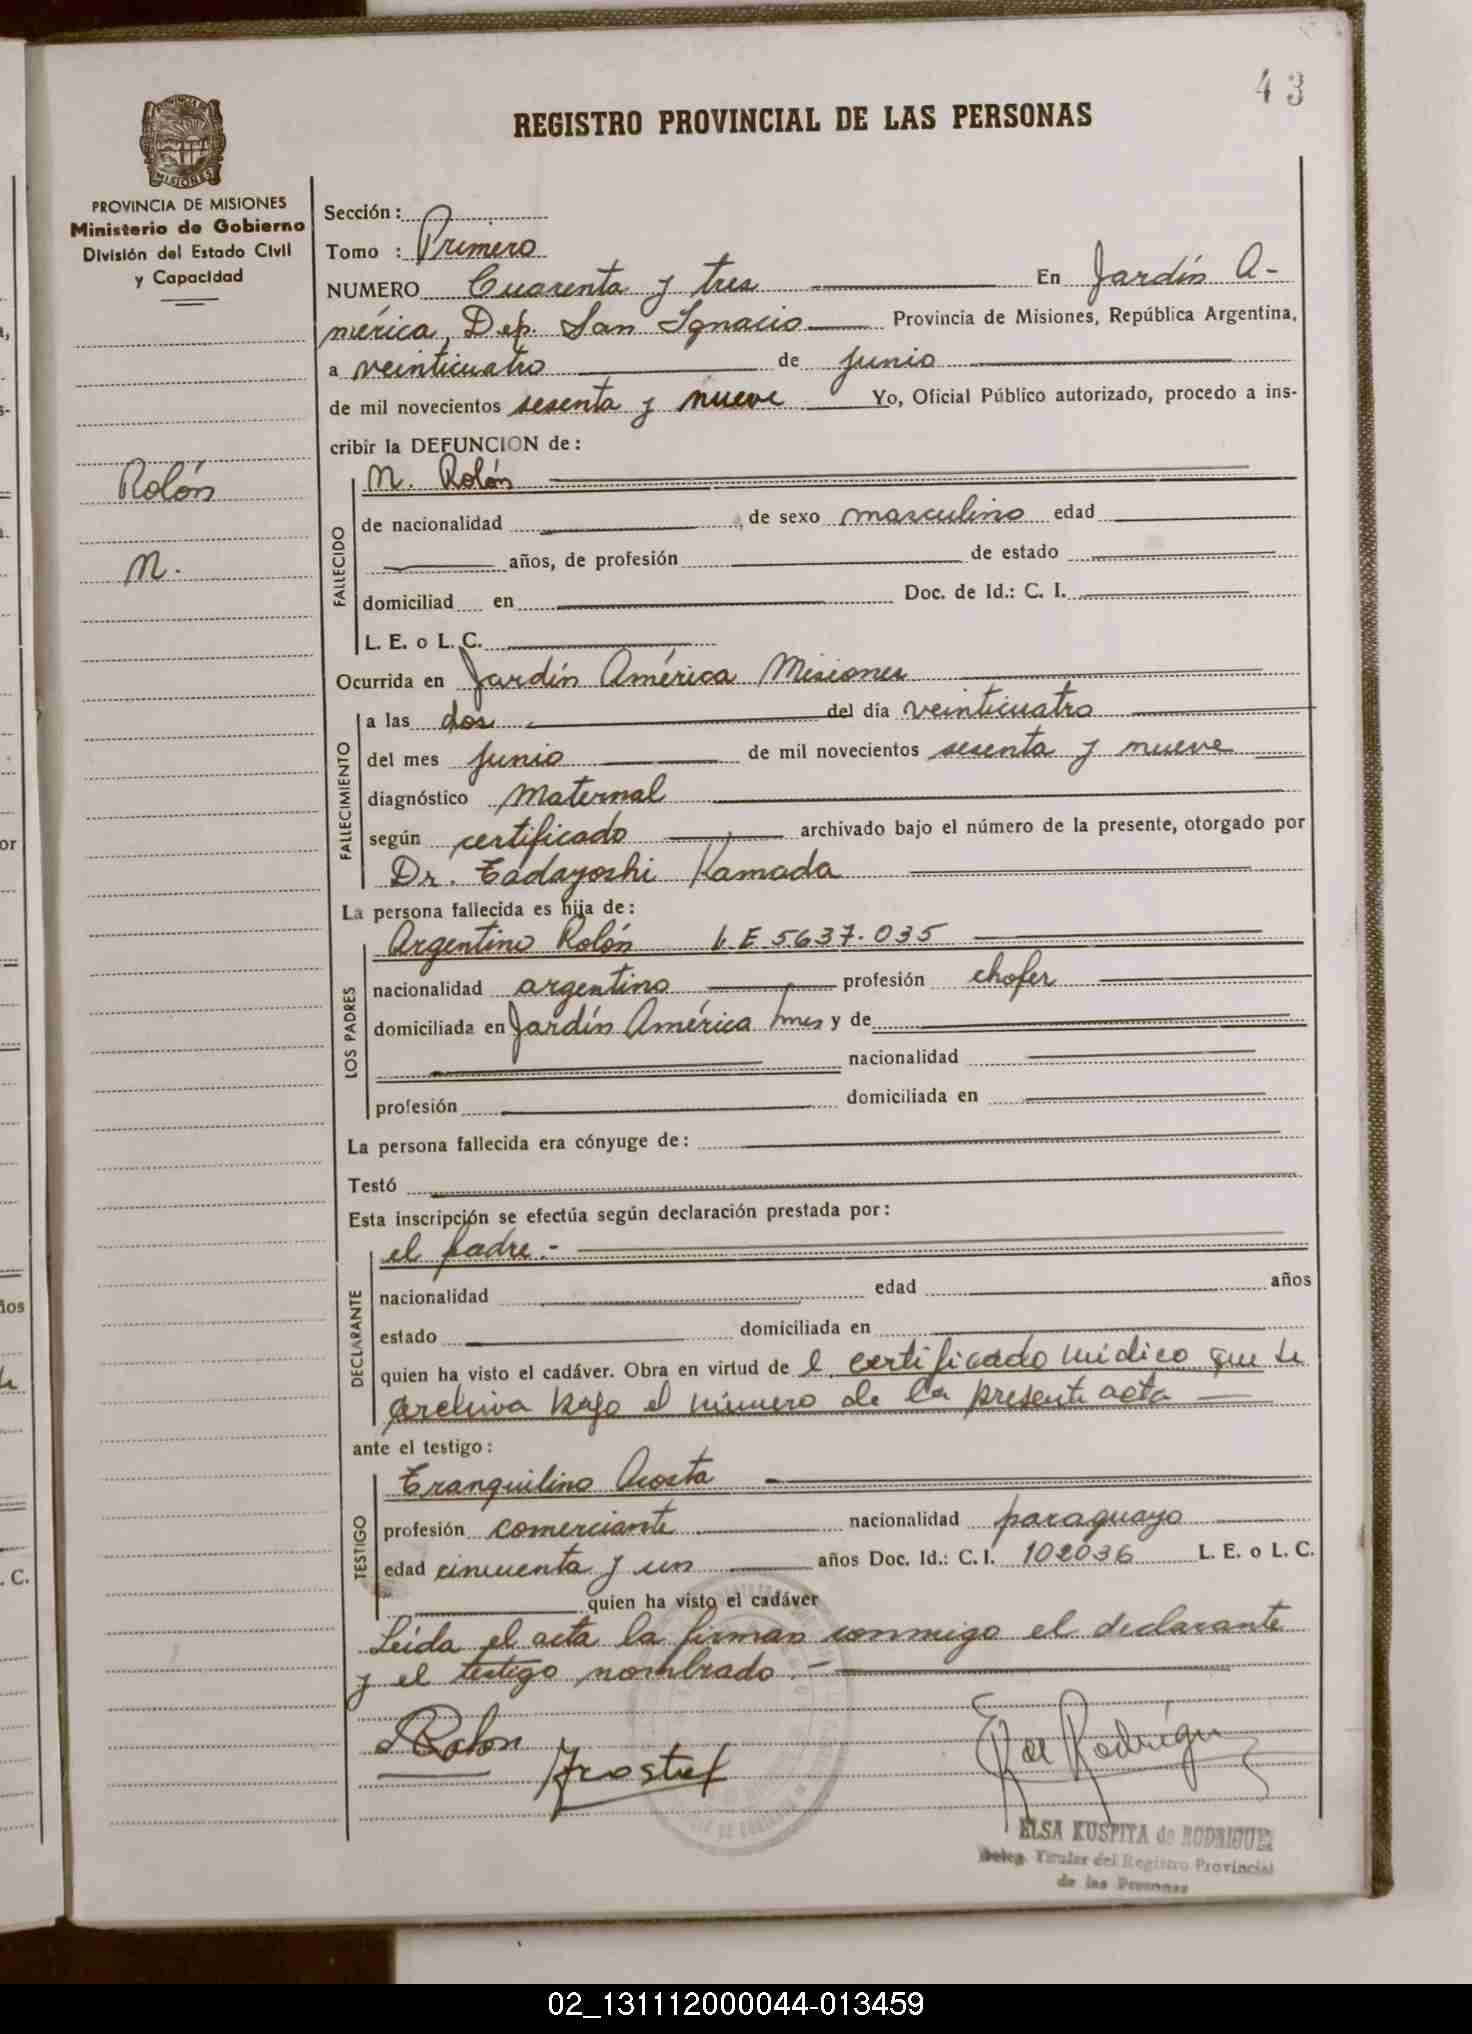 43
REGISTRO PROVINCIAL DE LAS PERSONAS
PROVINCIA DE MISIONES
Ministerio de Gobierno
División del Estado Civil
y Capacidad
Rolón
N.
Sección:
Tomo : Primero
NUMERO Cuarenta y tres En Jardín A-
mérica, Dep. San Ignacio Provincia de Misiones, República Argentina,
a veinticuatro de junio
de mil novecientos sesenta y nueve Yo, Oficial Público autorizado, procedo a ins-
cribir la DEFUNCION de:
FALLECIDO
N. Rolón
de nacionalidad de sexo masculino edad
años, de profesión de estado
domiciliad en Doc. de Id.: C. I.
L. E. o L. C.
Ocurrida en Jardín América Misiones
FALLECIMIENTO
a las dos del día veinticuatro
del mes junio de mil novecientos sesenta y nueve
diagnóstico Maternal
según certificado archivado bajo el número de la presente, otorgado por
Dr. Tadayoshi Kamada
La persona fallecida es hija de:
LOS PADRES
Argentino Rolón L.E. 5637.035
nacionalidad argentino profesión chofer
domiciliada en Jardín América Mnes y de
nacionalidad
profesión domiciliada en
La persona fallecida era cónyuge de:
Testó
Esta inscripción se efectúa según declaración prestada por:
DECLARANTE
el padre.-
nacionalidad edad años
estado domiciliada en
quien ha visto el cadáver. Obra en virtud de l certificado médico que se
archiva bajo el número de la presente acta
ante el testigo:
TESTIGO
Tranquilino Acosta
profesión comerciante nacionalidad paraguayo
edad cincuenta y un años Doc. Id.: C. I. 102036 L. E. o L. C.
quien ha visto el cadáver
Leída el acta la firman conmigo el declarante
y el testigo nombrado.-
Rolon
E K de Rodríguez
ELSA KUSPITA de RODRIGUEZ
Deleg. Titular del Registro Provincial
de las Personas
02_131112000044-013459